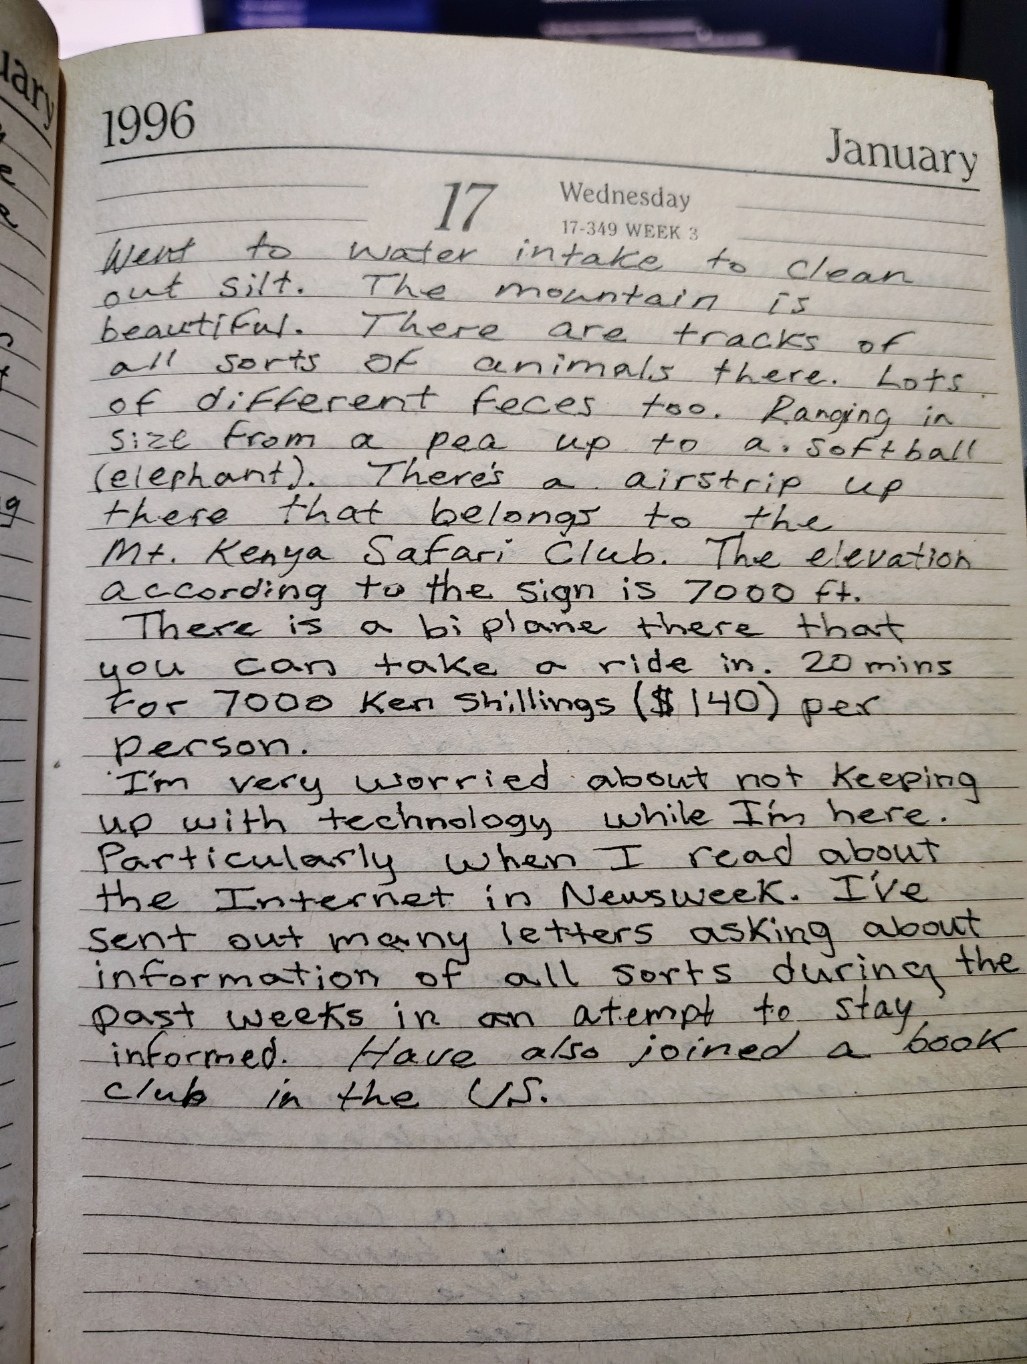 uary
1996
January
17
Wednesday
17-349 WEEK 3
Went to water intake to clean
out silt. The mountain is
beautiful. There are tracks of
all sorts of animals there. Lots
of different feces too. Ranging in
size from a pea up to a softball
(elephant). There's a airstrip up
there that belongs to the
Mt. Kenya Safari Club. The elevation
according to the sign is 7000 ft.
There is a biplane there that
you can take a ride in. 20 mins
for 7000 Ken Shillings ($140) per
person.
I'm very worried about not keeping
up with technology while I'm here.
Particularly when I read about
the Internet in Newsweek. I've
sent out many letters asking about
information of all sorts during the
past weeks in an atempt to stay
informed. Have also joined a book
club in the US.